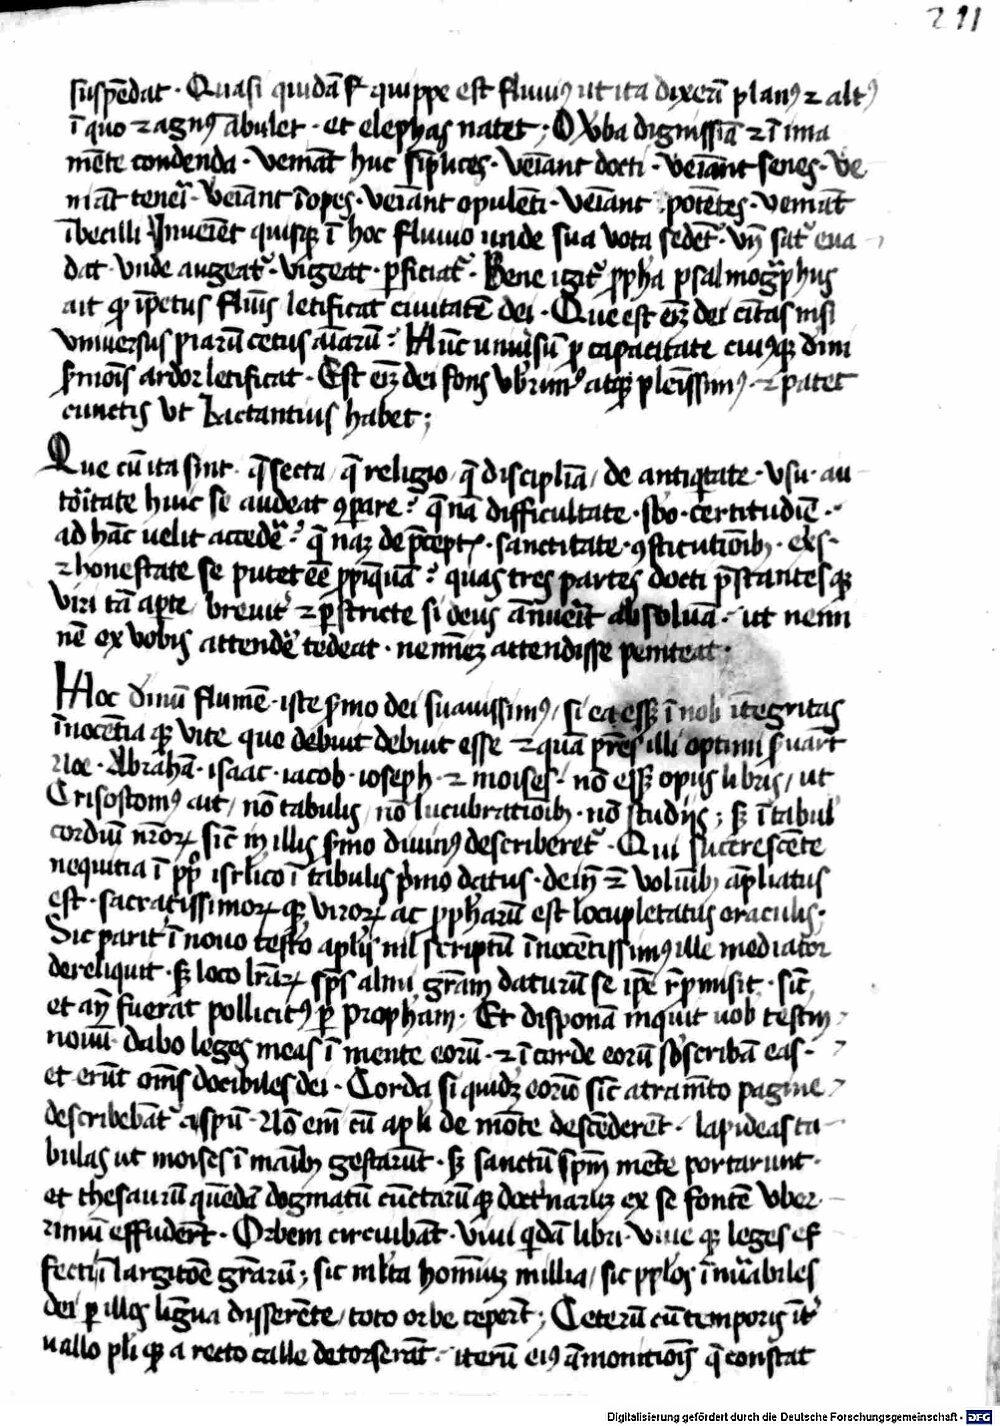 211
suspēdat · Quasi quidā sꝛ quippe est fluuiꝰ ut ita dixerī planꝰ ⁊ altꝰ
ī quo ⁊ agnꝰ ābulet · et elephas natet ; O v̓ba dignissīa ⁊ ī ima
mēte condenda · veniāt huc sīplices · veīant docti · veīant senes · ve
niāt teneri · veīant īopes · veīant opulēti · veīant potētes · veniāt
ībecilli Jnueīet quisqꝫ ī hoc fluuio unde sua vota sedet᷑ · vn̄ sat᷑ eua
dat · vnde augeat᷑ · vigeat · ꝑficiat᷑ · Bene igit᷑ ꝓpha psalmogͣphus
ait ꝙ īpetus fluīs letificat ciuitatē dei · Que est em̄ dei ciuitas nisi
vniuersus piarū cetus aīarū : Hūc uniuͥsū ꝓ capacitate cuiꝰqꝫ diuini
ẜmoīs ardor letificat · Est em̄ dei fons vb̓rimꝰ atqꝫ pleīssimꝰ · ⁊ patet
cunctis vt Lactantius habet ;
Que cū ita sint · q̄ secta / q̄ religio / q̄ disciplīa / de antiqͥtate · vsu · au
toͥitate huic se audeat ꝯparare : q̄ nā difficultate · sbō · certitudīe ·
ad hāc uelit accedē : q̄ naꝫ de p̄ceptꝝ · sanctitate · ꝯstitutiōibꝫ ·
⁊ honestate se putet eē ꝓpīquā : quas tres partes docti p̄stantesqꝫ
viri tā aꝑte / breuit᷑ ⁊ ꝑstricte si deus ānueīt absoluā · ut nemi
nē ex vobis attendē tedeat · neminēꝫ attendisse peniteat ·
Hoc diuinū flumē · iste ẜmo dei suauissimꝰ / si ea esseꝫ ī nob ītegritas
īnocētia qꝫ vite que debuit debuit esse ⁊ quā pr̄es illi optimi ẜuarūt
Noe · Abrahā · isaac · iacob · ioseph · ⁊ moises · nō esseꝫ opus libris / ut
Crisostomꝰ ait / nō tabulis / nō lucubratiōibꝫ · nō studijs ; sꝫ ī tabul
cordiū nr̄oꝝ sic̄ in illis ẜmo diuinꝰ describeret᷑ · Qui succrescēte
nequitia ī ppͦ isrl̓ico ī tabulis p̄mo datus · dein̄ ⁊ volūibꝫ āpliatus
est · sacratissimoꝝ qꝫ viroꝝ ac ꝓpharū est locupletatus oraculis ·
Sic parit᷑ ī nouo testo apl̓is nil scriptū īnocētissimꝰ ille mediator
dereliquit · sꝫ loco lr̄aꝝ sp̄s almi gr̄am daturū se ip̄e ꝓmisit · sic̄
et an̄ fuerat pollicitꝰ ꝑ propham · Et disponā inquit uob testm
nouū dabo leges meas ī mente eorū · ⁊ ī corde eorū sb̓scribā eas ·
et erūt om̄s docibiles dei · Corda siquideꝫ eorū sic̄ atramēto pagine
describebāt᷑ a spū · Nō em̄ cū apl̓i de mōte descēderēt · lapideas ta
bulas ut moises ī māibꝫ gestarūt · sꝫ sanctū sp̄m mēte portarunt ·
et thesaurū quēdā dogmatū cūctarū qꝫ doctͥnarū ex se fontē vber
rimū effuderūt · Orbem circuibāt · viui qͥdā libri · viue qꝫ leges ef
fecti largitōe gr̄arū ; sic ml̓ta homīuꝫ millia / sic ppl̓os īnūabiles
dei ꝑ illos lingua disserēte / toto orbe ceperūt ; Ceterū cū temporis īt᷑
uallo pl̓i qꝫ a recto calle detorserāt · iterū eiꝰ āmonitiōis q̄ constat
Digitalisierung gefördert durch die Deutsche Forschungsgemeinschaft - DFG